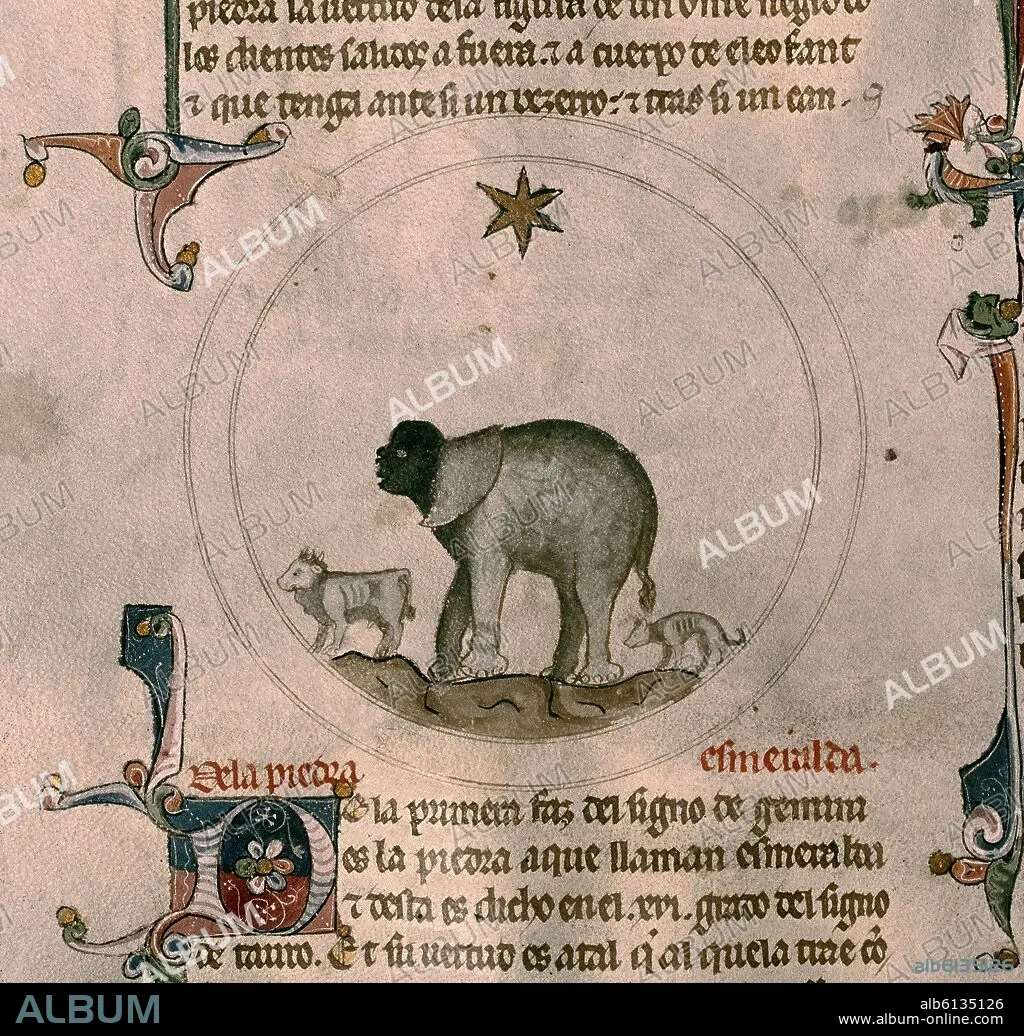 piedra la uertud dela figura de un ome negro
los dientes salidos a fuera. ⁊ a cuerpo de eleofant
⁊ que tenga ante si un bezerro: ⁊ tras si un can.
Dela piedra esmeralda.
De la primera faz del signo de gemini
es la piedra aque llaman esmeralda
⁊ desta es dicho enel .xvi. grado del signo
de tauro. Et su uertud es atal q̄ al quela trae cō
ALBUM
alb6135126
www.album-online.com